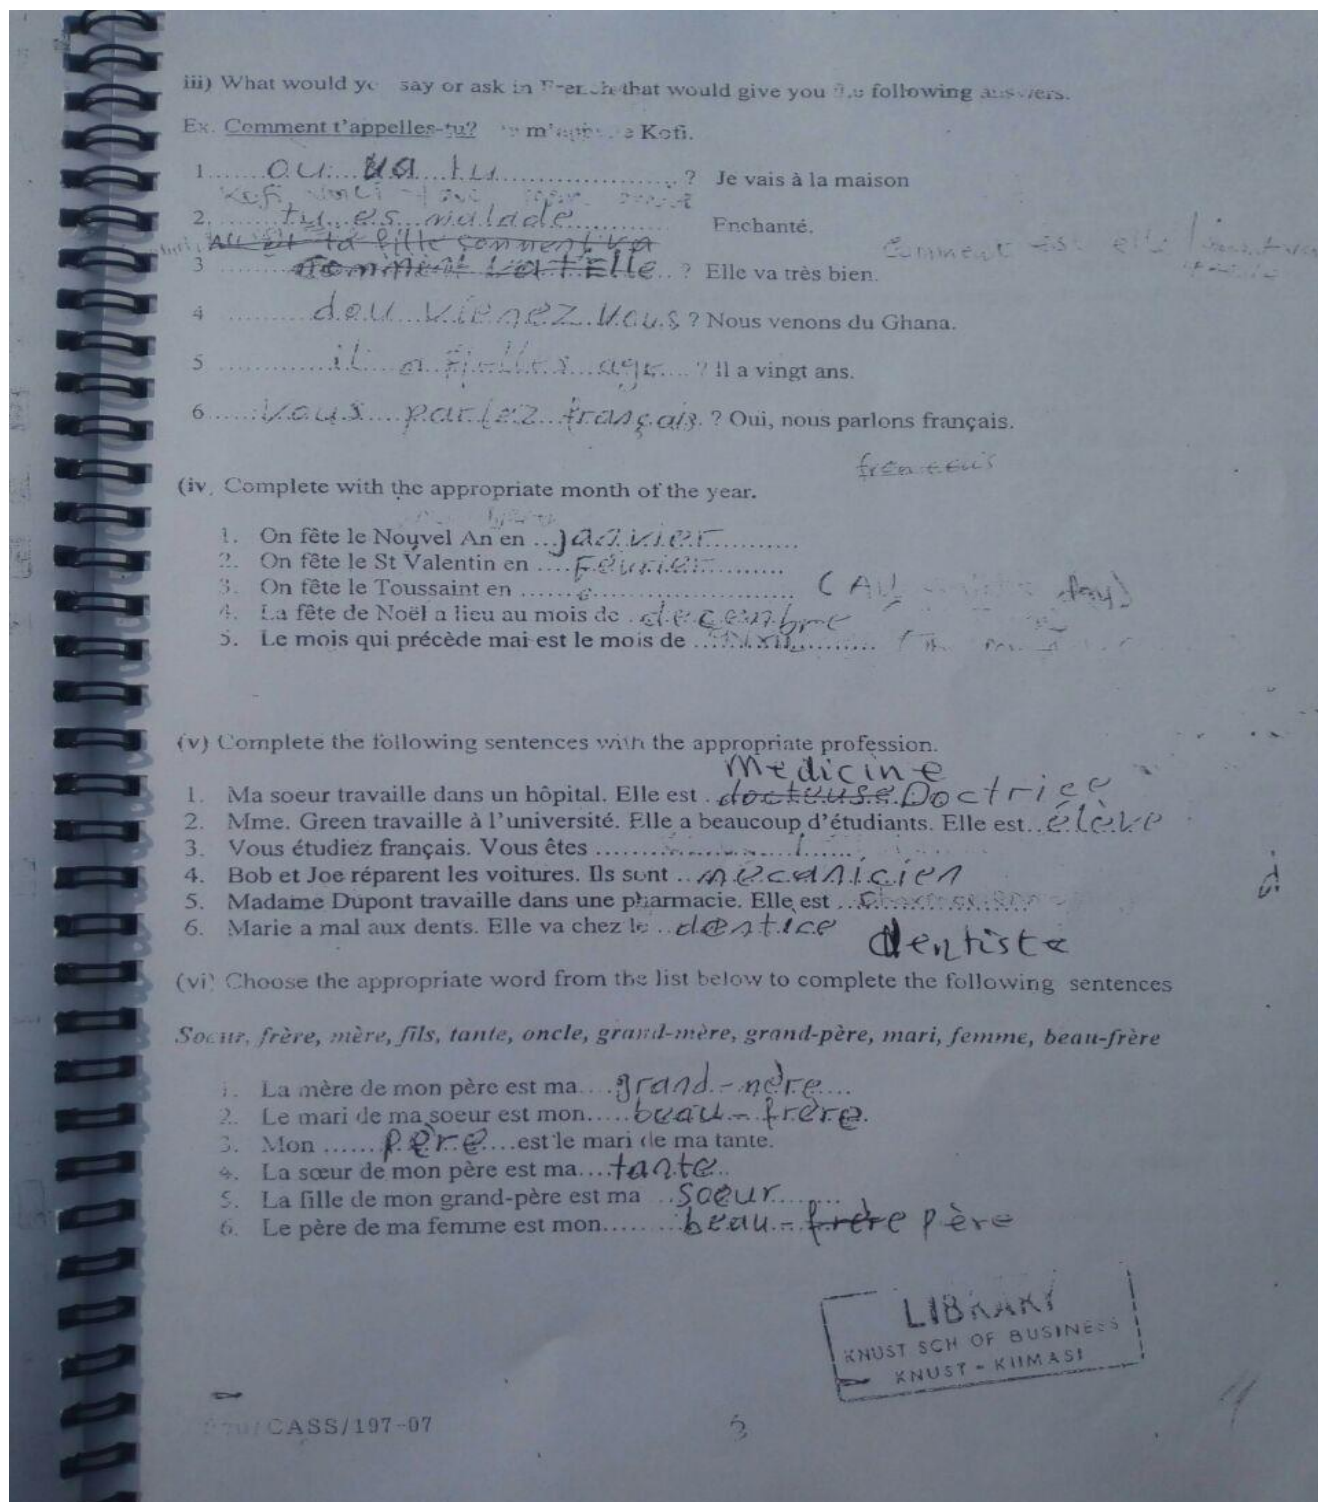 iii) What would say or ask in that would give you following
Ex. Comment t'appelles-tu? Kofi.
1 ou va tu ? Je vais à la maison
Kofi voici
2. tu es malade Enchanté.
la fille comment va Comment est elle
3 ? Elle va très bien.
4 dou vienez vous ? Nous venons du Ghana.
5 il a age ? Il a vingt ans.
6 vous parlez français. ? Oui, nous parlons français.
(iv, Complete with the appropriate month of the year.
1. On fête le Nouvel An en janvier
2. On fête le St Valentin en Fevrier
3. On fête le Toussaint en (All day)
4. La fête de Noël a lieu au mois de decembre
5. Le mois qui précède mai est le mois de
(v) Complete the following sentences with the appropriate profession.
Medicine
1. Ma soeur travaille dans un hôpital. Elle est docteuse Doctrice
2. Mme. Green travaille à l'université. Elle a beaucoup d'étudiants. Elle est élève
3. Vous étudiez français. Vous êtes
4. Bob et Joe réparent les voitures. Ils sont mécanicien
5. Madame Dupont travaille dans une pharmacie. Elle est
6. Marie a mal aux dents. Elle va chez le dentice
dentiste
(vi) Choose the appropriate word from the list below to complete the following sentences
Soeur, frère, mère, fils, tante, oncle, grand-mère, grand-père, mari, femme, beau-frère
1. La mère de mon père est ma grand-mère
2. Le mari de ma soeur est mon beau-frère.
3. Mon père est le mari de ma tante.
4. La sœur de mon père est ma tante
5. La fille de mon grand-père est ma soeur
6. Le père de ma femme est mon beau-frère père
LIBRARY
KNUST SCH OF BUSINESS
KNUST - KUMASI
/CASS/197-07
3